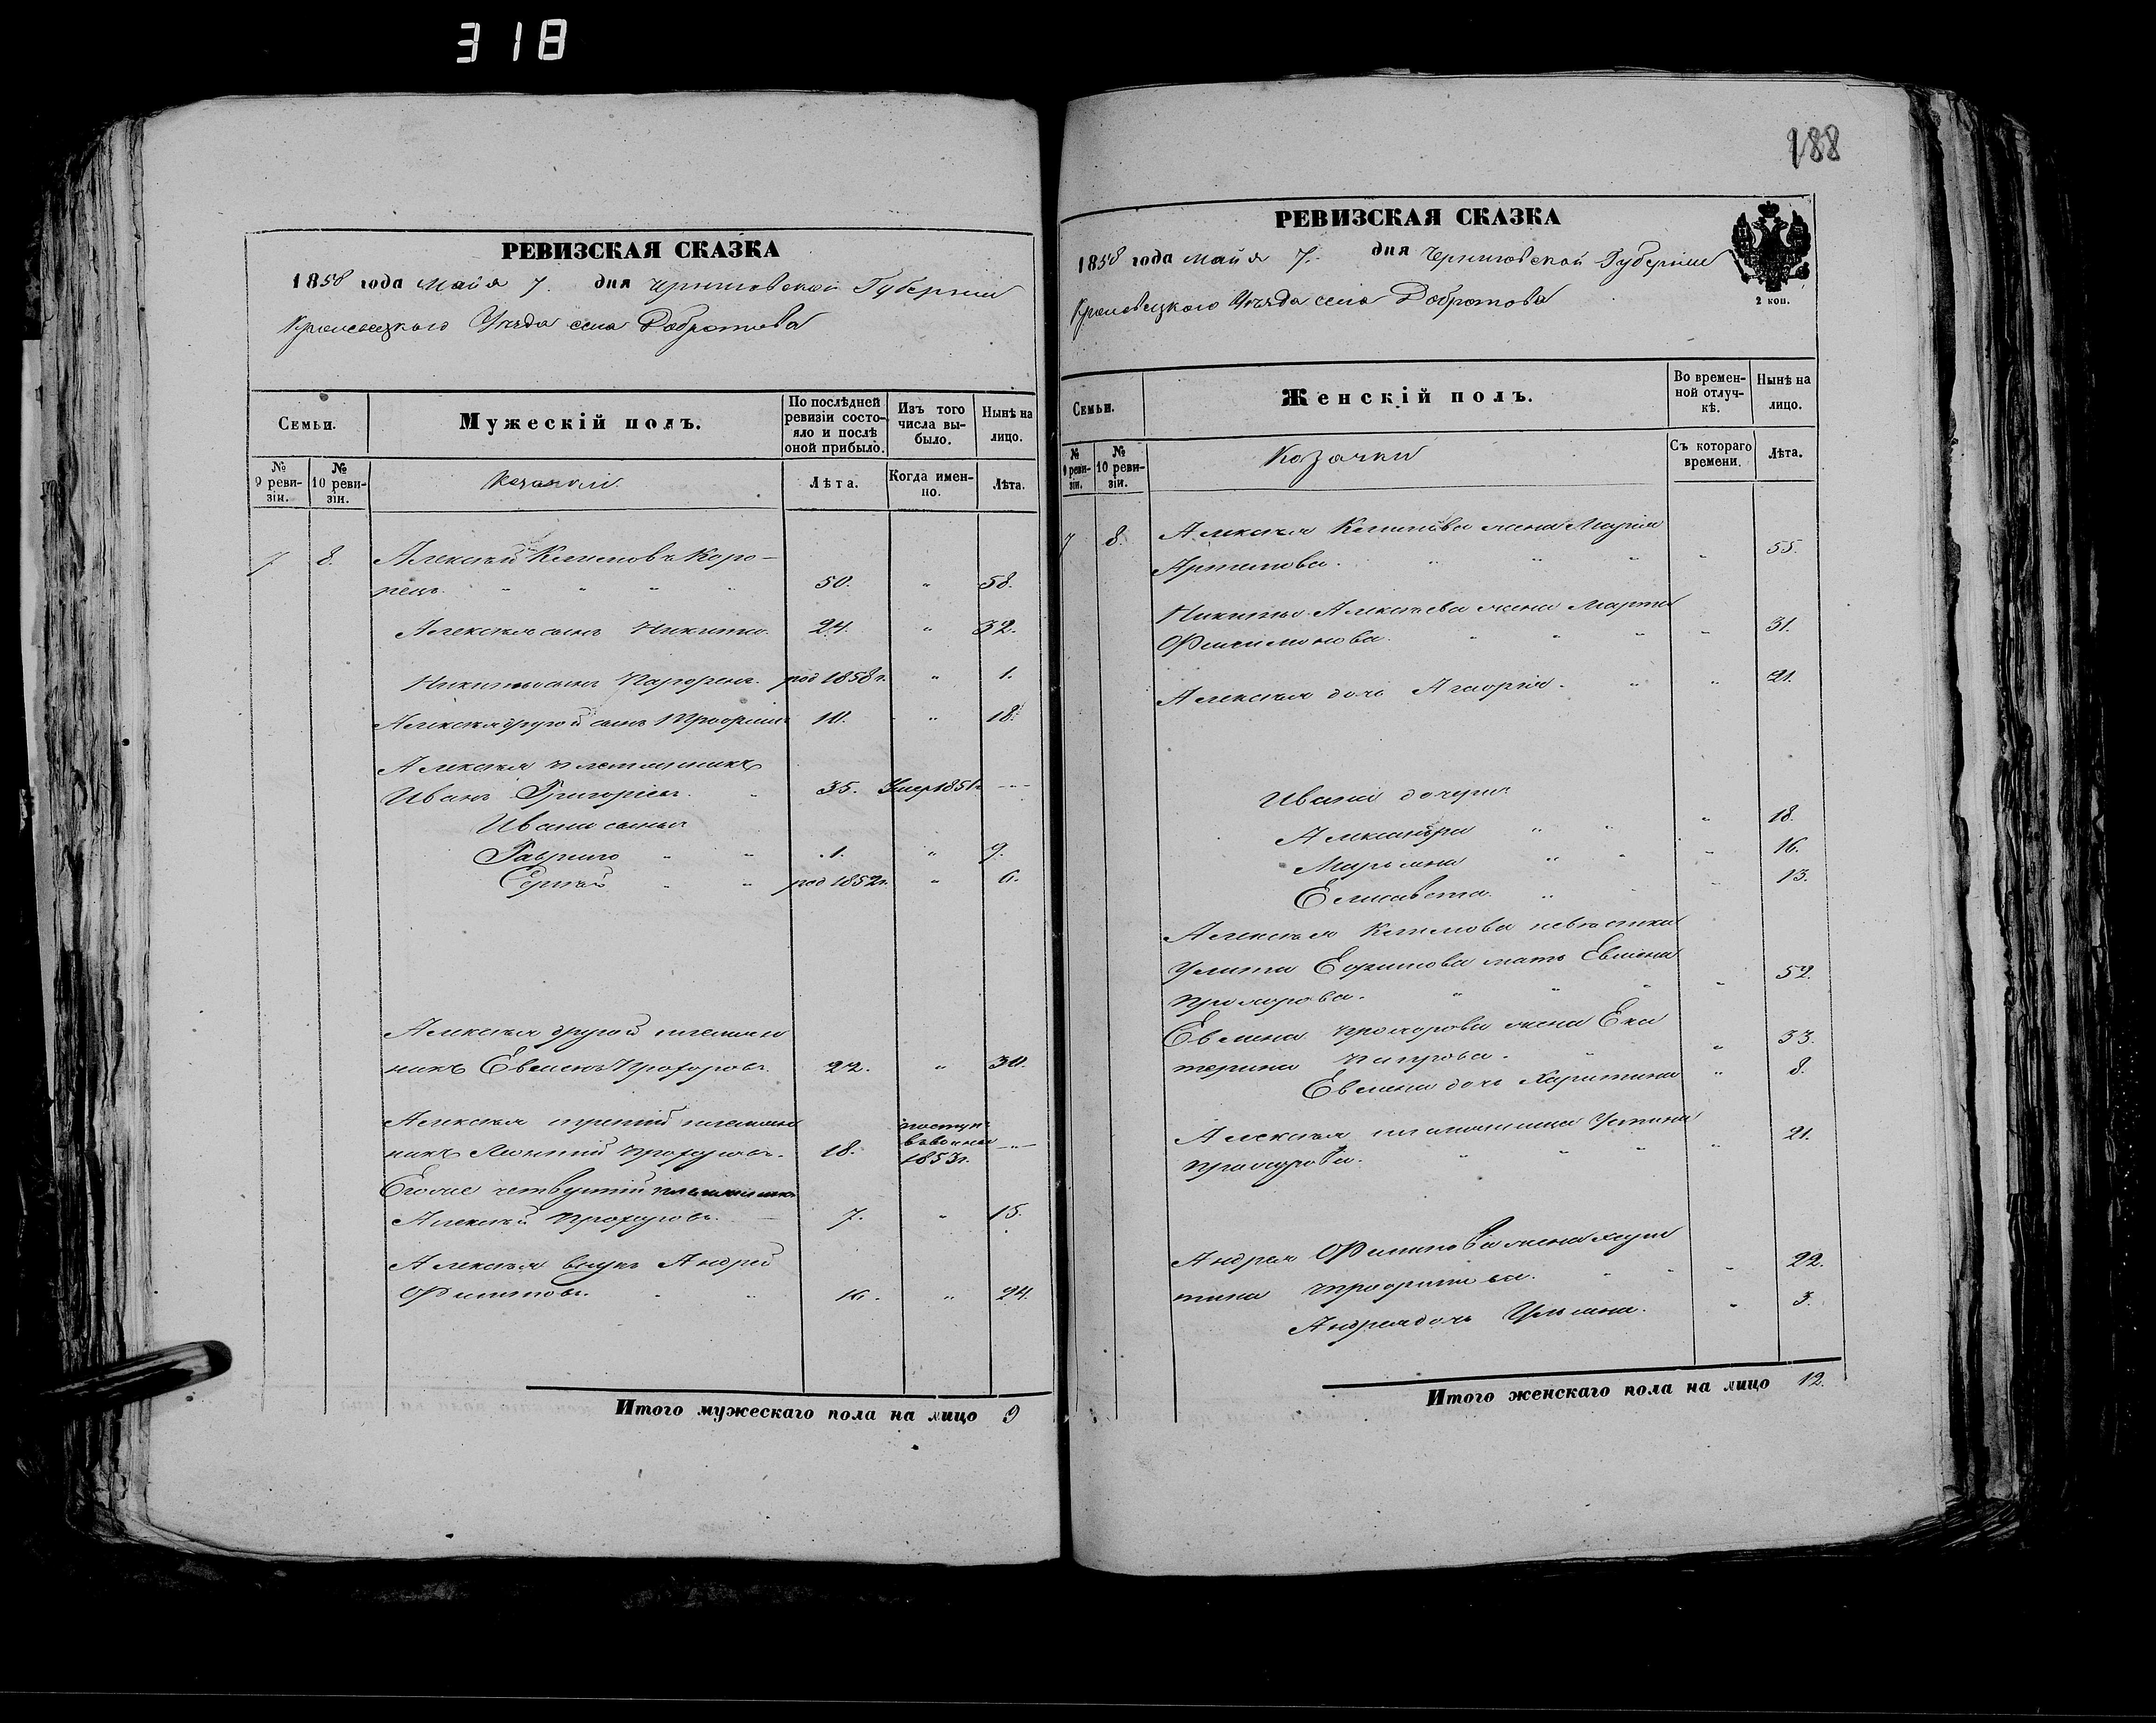 318
188
РЕВИЗСКАЯ СКАЗКА
1858 года Майя 7. дня Черниговской Губернии
Кролевецкаго Уѣзда села Добротова
Семьи.
Мужескій полъ.
По послѣдней ревизіи состояло и послѣ оной прибыло.
Изъ того числа выбыло.
Нынѣ на лицо.
№ 9 ревизіи.
№ 10 ревизіи.
Козаки
Лѣта.
Когда именно.
Лѣта.
7 8. Алексѣй Климовъ Коро-
пецъ. " " " " 50. " 58.
Алексѣя сынъ Никита. 24. " 32.
Никиты сынъ Парфенъ. род 1858 г. " 1.
Алексѣя другой сынъ Трофимъ 10. " 18.
Алексѣя племянникъ
Иванъ Григорьевъ. " 35. Умер 1851 г. "
Ивана сыны
Гаврило " " 1. " 9.
Сергѣй " " род 1852 г. " 6.
Алексѣя другой племян
никъ Евменъ Прохоровъ. 22. " 30.
Алексѣя третій племян
никъ Леонтій Прохоровъ. 18. поступ. въ военны 1853 г. "
Егоже четвертій племянник
Алексѣй Прохоровъ. 7. " 15.
Алексѣя внукъ Андрей
Филиповъ. " " 16. " 24.
Итого мужескаго пола на лицо 9
РЕВИЗСКАЯ СКАЗКА
1858 года Майя 7. дня Черниговской Губерніи
Кролевецкаго Уѣзда села Добротова
2 коп.
Семьи.
Женскій полъ.
Во временной отлучкѣ.
Нынѣ на лицо.
№ 9 ревизіи.
№ 10 ревизіи.
Козачки
Съ котораго времени.
Лѣта.
7 8. Алексѣя Климова жена Марія
Артемова. " " " " 55.
Никиты Алексѣева жена Марта
Филимонова. " " " " 31.
Алексѣя дочь Агафія. " " 21.
Ивана дочери
Александра " " " 18.
Марьяна " " " 16.
Елисавета. " " " 13.
Алексѣя Климова невѣстка
Улита Ефимова мать Евмена
Прохорова. " " " " 52.
Евмена Прохорова жена Ека
терина Петрова. " " 33.
Евмена дочь Харитина " 8.
Алексѣя племянница Устина
Прохорова. " " " " 21.
Андрея Филипова жена Хари
тина Трофимова. " " " 22.
Андрея дочь Ульяна. " 3.
Итого женскаго пола на лицо 12.